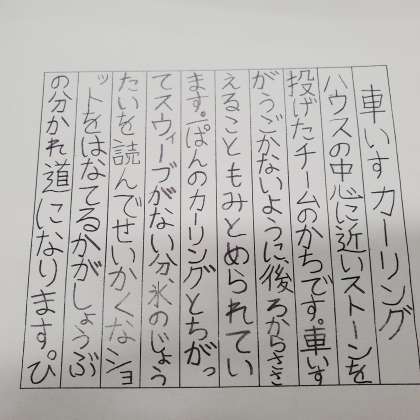 車いすカーリング
ハウスの中心に近いストーンを
投げたチームのかちです。車いす
がうごかないように、後ろからささ
えることもみとめられてい
ます。ぱんのカーリングとちがっ
てスウィープがない分、氷のじょう
たいを読んでせいかくなショ
ットをはなてるかがしょうぶ
の分かれ道になります。ひ